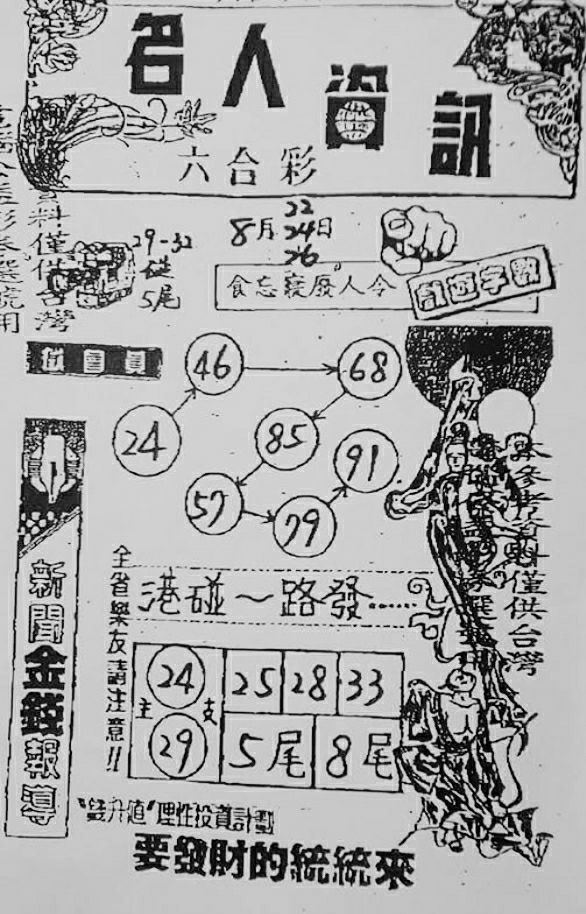 名人資訊
六合彩
8月22 24 26日
29-32
碰
5尾
食忘寢廢"人令
遊字數
46
68
24
85
91
57
79
新聞金錢報導
全省樂友請注意!!
港碰～路發......
主 24 29 支
25 28 33
5尾 8尾
本參考資料僅供台灣
料僅供台灣
理性投資計劃
要發財的統統來